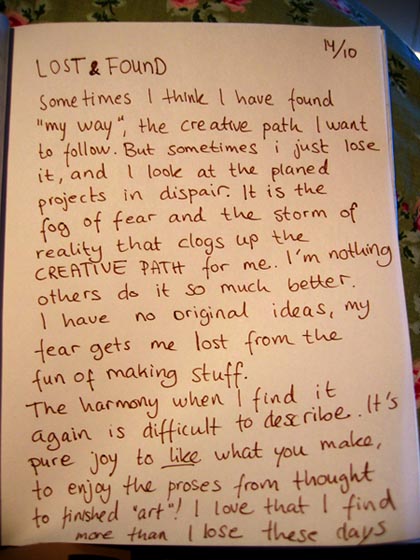 14/10
LOST & FOUND
Sometimes I think I have found
"my way", the creative path I want
to follow. But sometimes i just lose
it, and I look at the planed
projects in dispair. It is the
fog of fear and the storm of
reality that clogs up the
CREATIVE PATH for me.. I'm nothing
others do it so much better.
I have no original ideas, my
fear gets me lost from the
fun of making stuff.
The harmony when I find it
again is difficult to describe.. It's
pure joy to like what you make,
to enjoy the proses from thought
to finished "art"! I love that I find
more than I lose these days